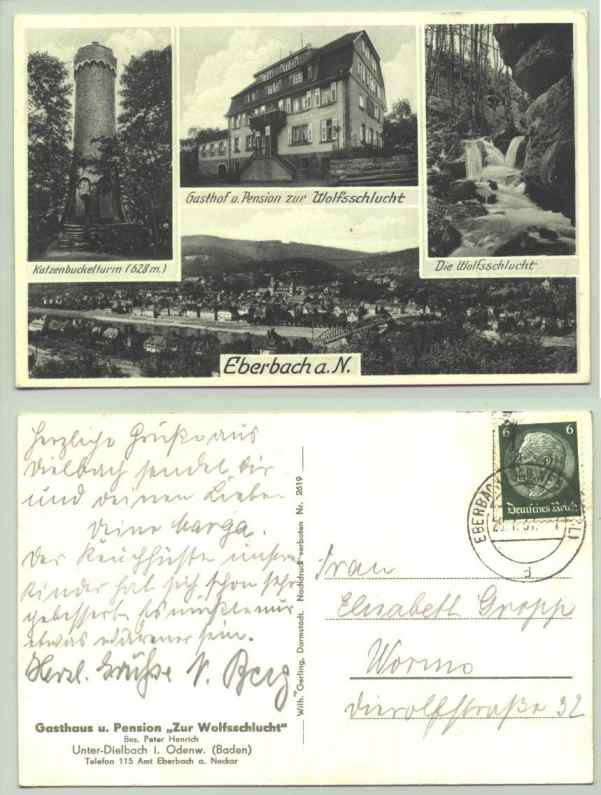 Katzenbuckelturm (628 m.)
Gasthof u. Pension zur Wolfsschlucht
Die Wolfsschlucht
Eberbach a. N.
Herzliche Grüße aus
Dielbach sendet dir
und deinen Lieben
Deine Marga.
Der Keuchhusten unserer
Kinder hat sich schon sehr
gebessert. Es müßte nur
etwas wärmer sein.
Herzl. Grüße V. Berg
Gasthaus u. Pension „Zur Wolfsschlucht"
Bes. Peter Henrich
Unter-Dielbach i. Odenw. (Baden)
Telefon 115 Amt Eberbach a. Neckar
Wilh. Gerling, Darmstadt. Nachdruck verboten Nr. 2619
6 6
Deutsches Reich
EBERBACH
d
Frau
Elisabeth Gropp
Worms
Dierolfstraße 32